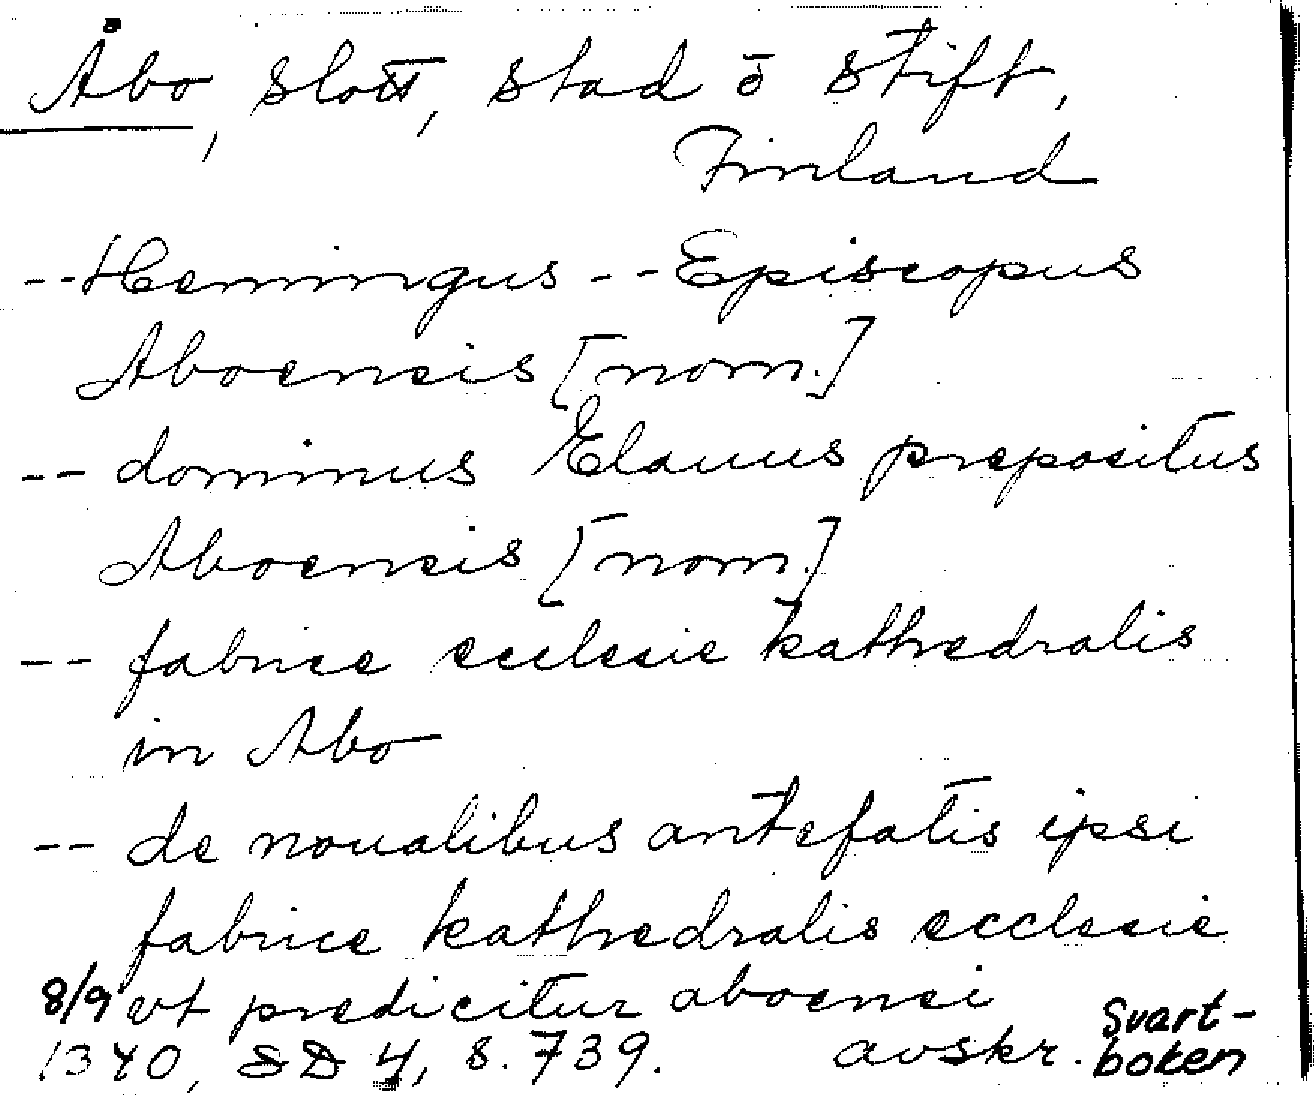 Åbo, slott, stad o stift,
Finland
--Hemingus--Episcopus
Aboensis [nom.]
-- dominus Elauus prepositus
Aboensis [nom.]
-- fabrice ecclesie kathedralis
in Abo
-- de noualibus antefatis ipsi
fabrice kathedralis ecclesie
8/9 vt predicitur aboensi
1340, SD 4, s. 739. avskr. Svart-
boken